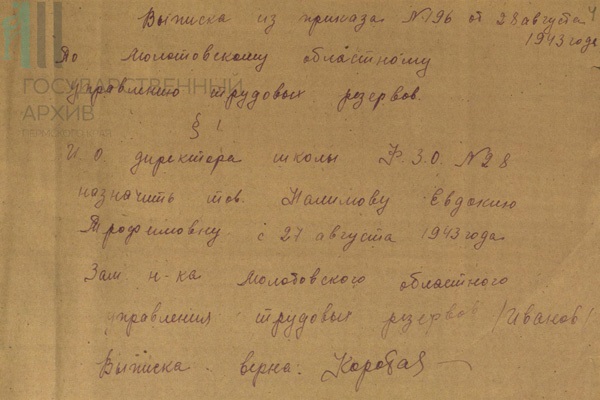 Выписка из приказа №196 от 28 августа
1943 года
По Молотовскому областному
управлению трудовых резервов.
§ 1
И.О. директора школы Ф.З.О. №28
назначить тов. Налимову Евдокию
Трофимовну с 27 августа 1943 года
Зам. н-ка Молотовского областного
управления трудовых резервов /Иванов/
Выписка верна.
ГОСУДАРСТВЕННЫЙ
АРХИВ
ПЕРМСКОГО КРАЯ